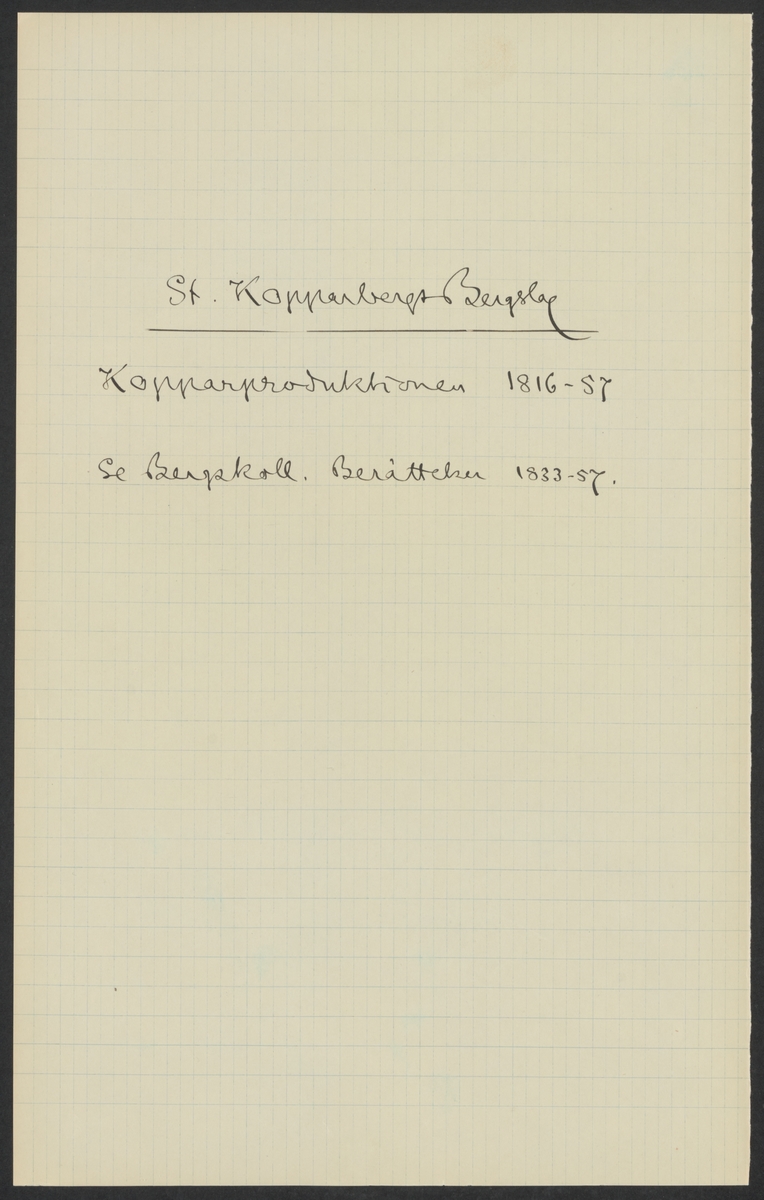 St. Kopparbergs Bergslag
Kopparproduktionen 1816-57
Se Bergskoll. Berättelser 1833-57.